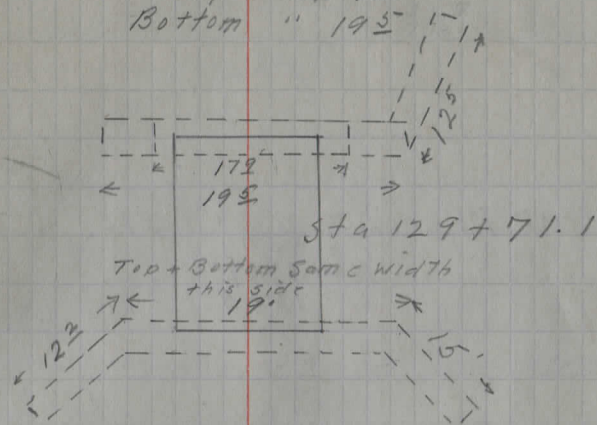 Bottom " 19 5
12 5
17 2
19 5
Sta 129 + 71.1
Top + Bottom Same width
this side
19'
12 2
15'